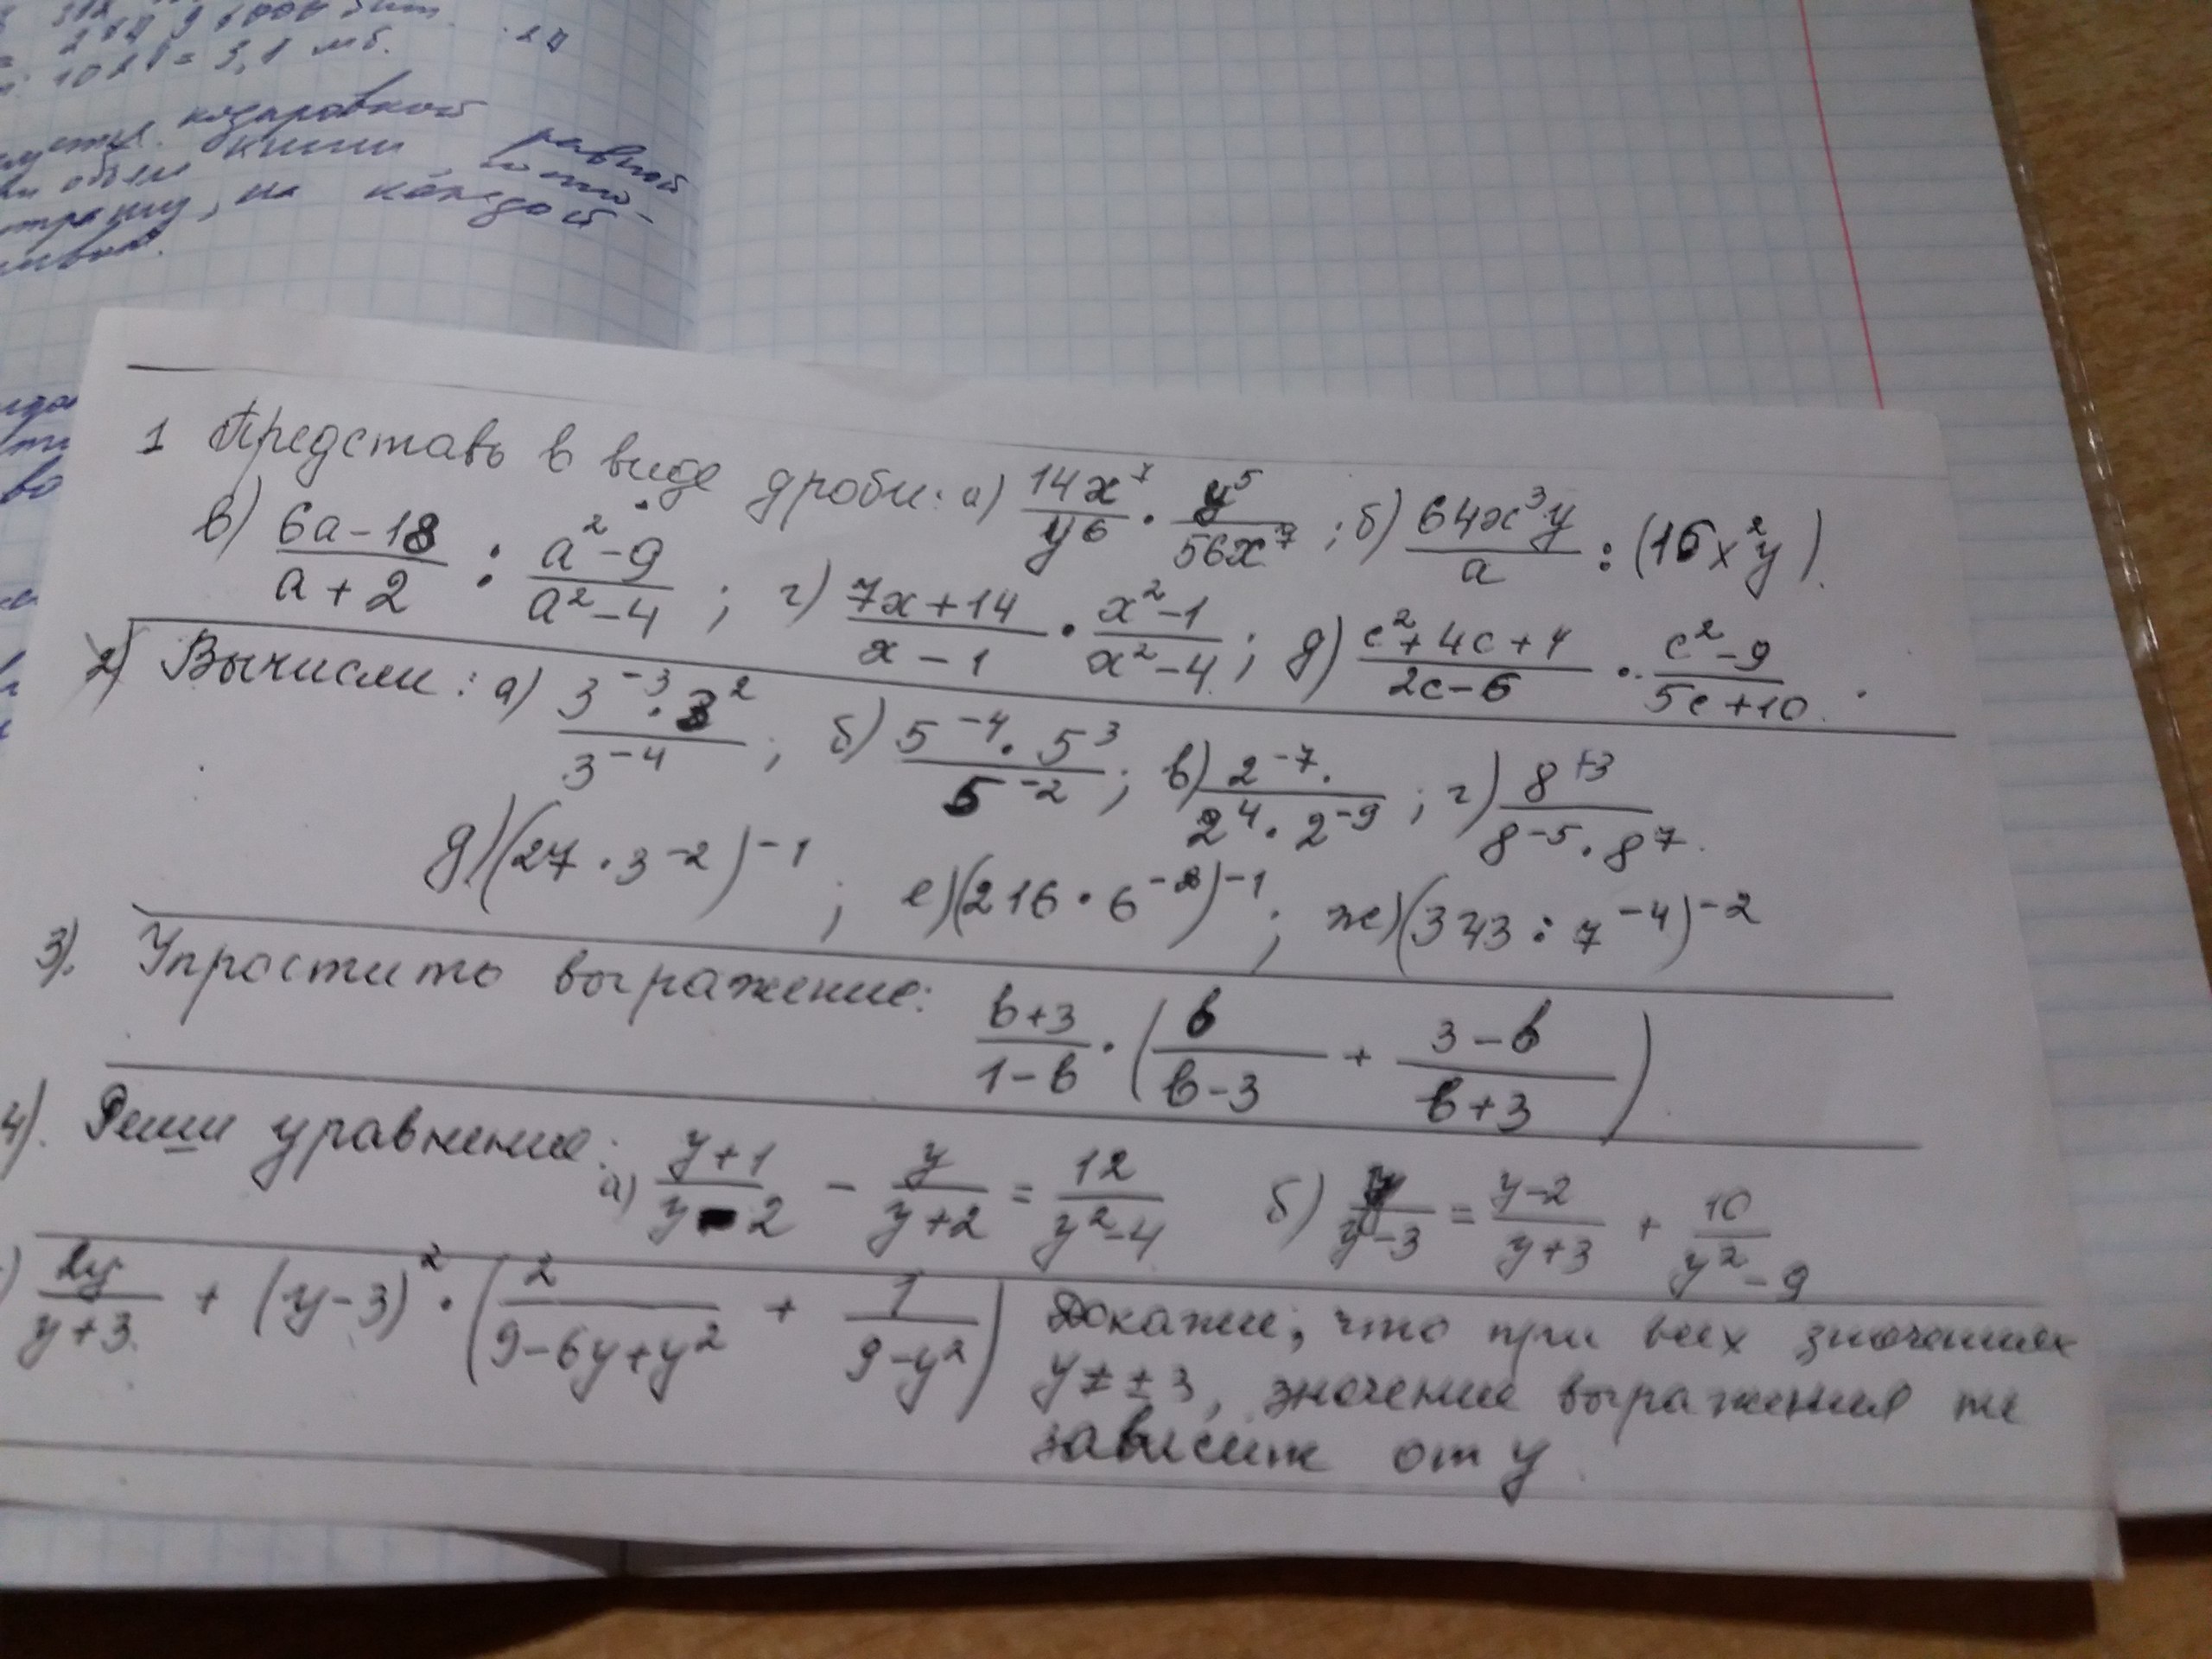 1024 = 3,1 мб.
кодировкой
книги
равной
на каждой
1 Представь в виде дроби: а) 14x⁷/y⁶ · y⁵/56x⁷ ; б) 64x³y/a : (16x²y).
в) 6a-18/a+2 : a²-9/a²-4 ; г) 7x+14/x-1 · x²-1/x²-4 ; д) c²+4c+4/2c-6 · c²-9/5c+10 .
2) Вычисли: а) 3⁻³·3²/3⁻⁴ ; б) 5⁻⁴·5³/5⁻² ; в) 2⁻⁷·/2⁴·2⁻⁹ ; г) 8⁺³/8⁻⁵·8⁷.
д) (27·3⁻²)⁻¹ ; е) (216·6⁻²)⁻¹ ; ж) (343:7⁻⁴)⁻²
3). Упростить выражение: b+3/1-b · (b/b-3 + 3-b/b+3)
4). Реши уравнение: а) y+1/y-2 - y/y+2 = 12/y²-4 б) y/y-3 = y-2/y+3 + 10/y²-9
) 2y/y+3 + (y-3)² · (2/9-6y+y² + 1/9-y²) Докажи, что при всех значениях
y≠±3, значение выражения не
зависит от y